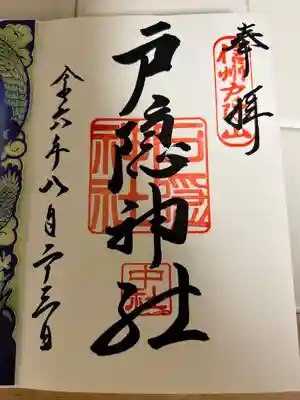 奉拝
信州戸隠山
戸隠神社
戸隠神社
中社
令六年八月二十三日